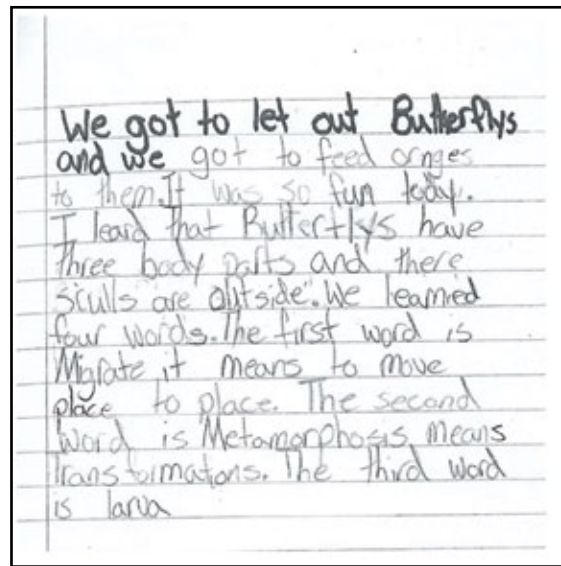 We got to let out Butterflys
and we got to feed ornges
to them. It was so fun today.
I leard that Butterflys have
three body parts and there
sculls are outside. We learnied
four words. The first word is
Migrate it means to move
place to place. The second
word is Metamorphosis means
transformations. The third word
is larva